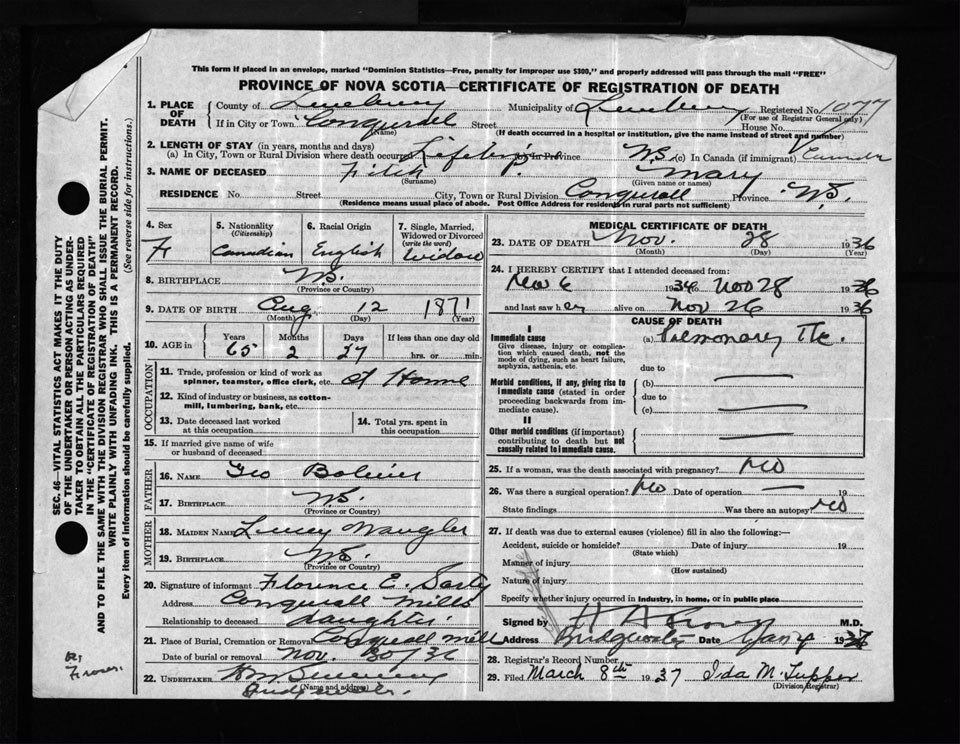 This form if placed in an envelope, marked "Dominion Statistics—Free, penalty for improper use $300," and properly addressed will pass through the mail "FREE"
PROVINCE OF NOVA SCOTIA—CERTIFICATE OF REGISTRATION OF DEATH
1. PLACE OF DEATH County of Lunenburg Municipality of Lunenburg Registered No. 1077
(For use of Registrar General only)
If in City or Town Conquerall Street House No.
(Name) (If death occurred in a hospital or institution, give the name instead of street and number)
2. LENGTH OF STAY (in years, months and days)
(a) In City, Town or Rural Division where death occurred Lifetime (b) In Province N.S. (c) In Canada (if immigrant) Canada
3. NAME OF DECEASED Fitch Mary
(Surname) (Given name or names)
RESIDENCE No. Street City, Town or Rural Division Conquerall Province N.S.
(Residence means usual place of abode. Post Office Address for residents in rural parts not sufficient)
4. Sex F
5. Nationality (Citizenship) Canadian
6. Racial Origin English
7. Single, Married, Widowed or Divorced (write the word) Widow
8. BIRTHPLACE N.S.
(Province or Country)
9. DATE OF BIRTH Aug 12 1871
(Month) (Day) (Year)
10. AGE in Years Months Days If less than one day old
65 2 27 hrs. or min.
OCCUPATION
11. Trade, profession or kind of work as spinner, teamster, office clerk, etc. At Home
12. Kind of industry or business, as cotton-mill, lumbering, bank, etc.
13. Date deceased last worked at this occupation
14. Total yrs. spent in this occupation
15. If married give name of wife or husband of deceased
FATHER
16. NAME Geo
17. BIRTHPLACE N.S.
(Province or Country)
MOTHER
18. MAIDEN NAME Naugler
19. BIRTHPLACE N.S.
(Province or Country)
20. Signature of informant Florence E. Sarty
Address Conquerall Mills
Relationship to deceased daughter
21. Place of Burial, Cremation or Removal Conquerall Mills
Date of burial or removal Nov. 30/36
22. UNDERTAKER
(Name and address)
MEDICAL CERTIFICATE OF DEATH
23. DATE OF DEATH Nov. 28 1936
(Month) (Day) (Year)
24. I HEREBY CERTIFY that I attended deceased from:
1934 to Nov 28 1936
and last saw her alive on Nov 26 1936
CAUSE OF DEATH
I
Immediate cause
Give disease, injury or complication which caused death, not the mode of dying, such as heart failure, asphyxia, asthenia, etc.
(a) Pulmonary Tbc.
due to
Morbid conditions, if any, giving rise to immediate cause (stated in order proceeding backwards from immediate cause).
(b)
due to
(c)
II
Other morbid conditions (if important) contributing to death but not causally related to immediate cause.
25. If a woman, was the death associated with pregnancy? No
26. Was there a surgical operation? No Date of operation — 19
State findings Was there an autopsy? No
27. If death was due to external causes (violence) fill in also the following:—
Accident, suicide or homicide? Date of injury 19
(State which)
Manner of injury
(How sustained)
Nature of injury
Specify whether injury occurred in industry, in home, or in public place
Signed by M.D.
Address Bridgewater Date Jan 4
28. Registrar's Record Number
29. Filed March 8th 1937 Ida M. Tupper
(Division Registrar)
SEC. 46—VITAL STATISTICS ACT MAKES IT THE DUTY
OF THE UNDERTAKER OR PERSON ACTING AS UNDER-
TAKER TO OBTAIN ALL THE PARTICULARS REQUIRED
IN THE "CERTIFICATE OF REGISTRATION OF DEATH"
AND TO FILE THE SAME WITH THE DIVISION REGISTRAR WHO SHALL ISSUE THE BURIAL PERMIT.
WRITE PLAINLY WITH UNFADING INK. THIS IS A PERMANENT RECORD.
Every item of information should be carefully supplied. (See reverse side for instructions.)